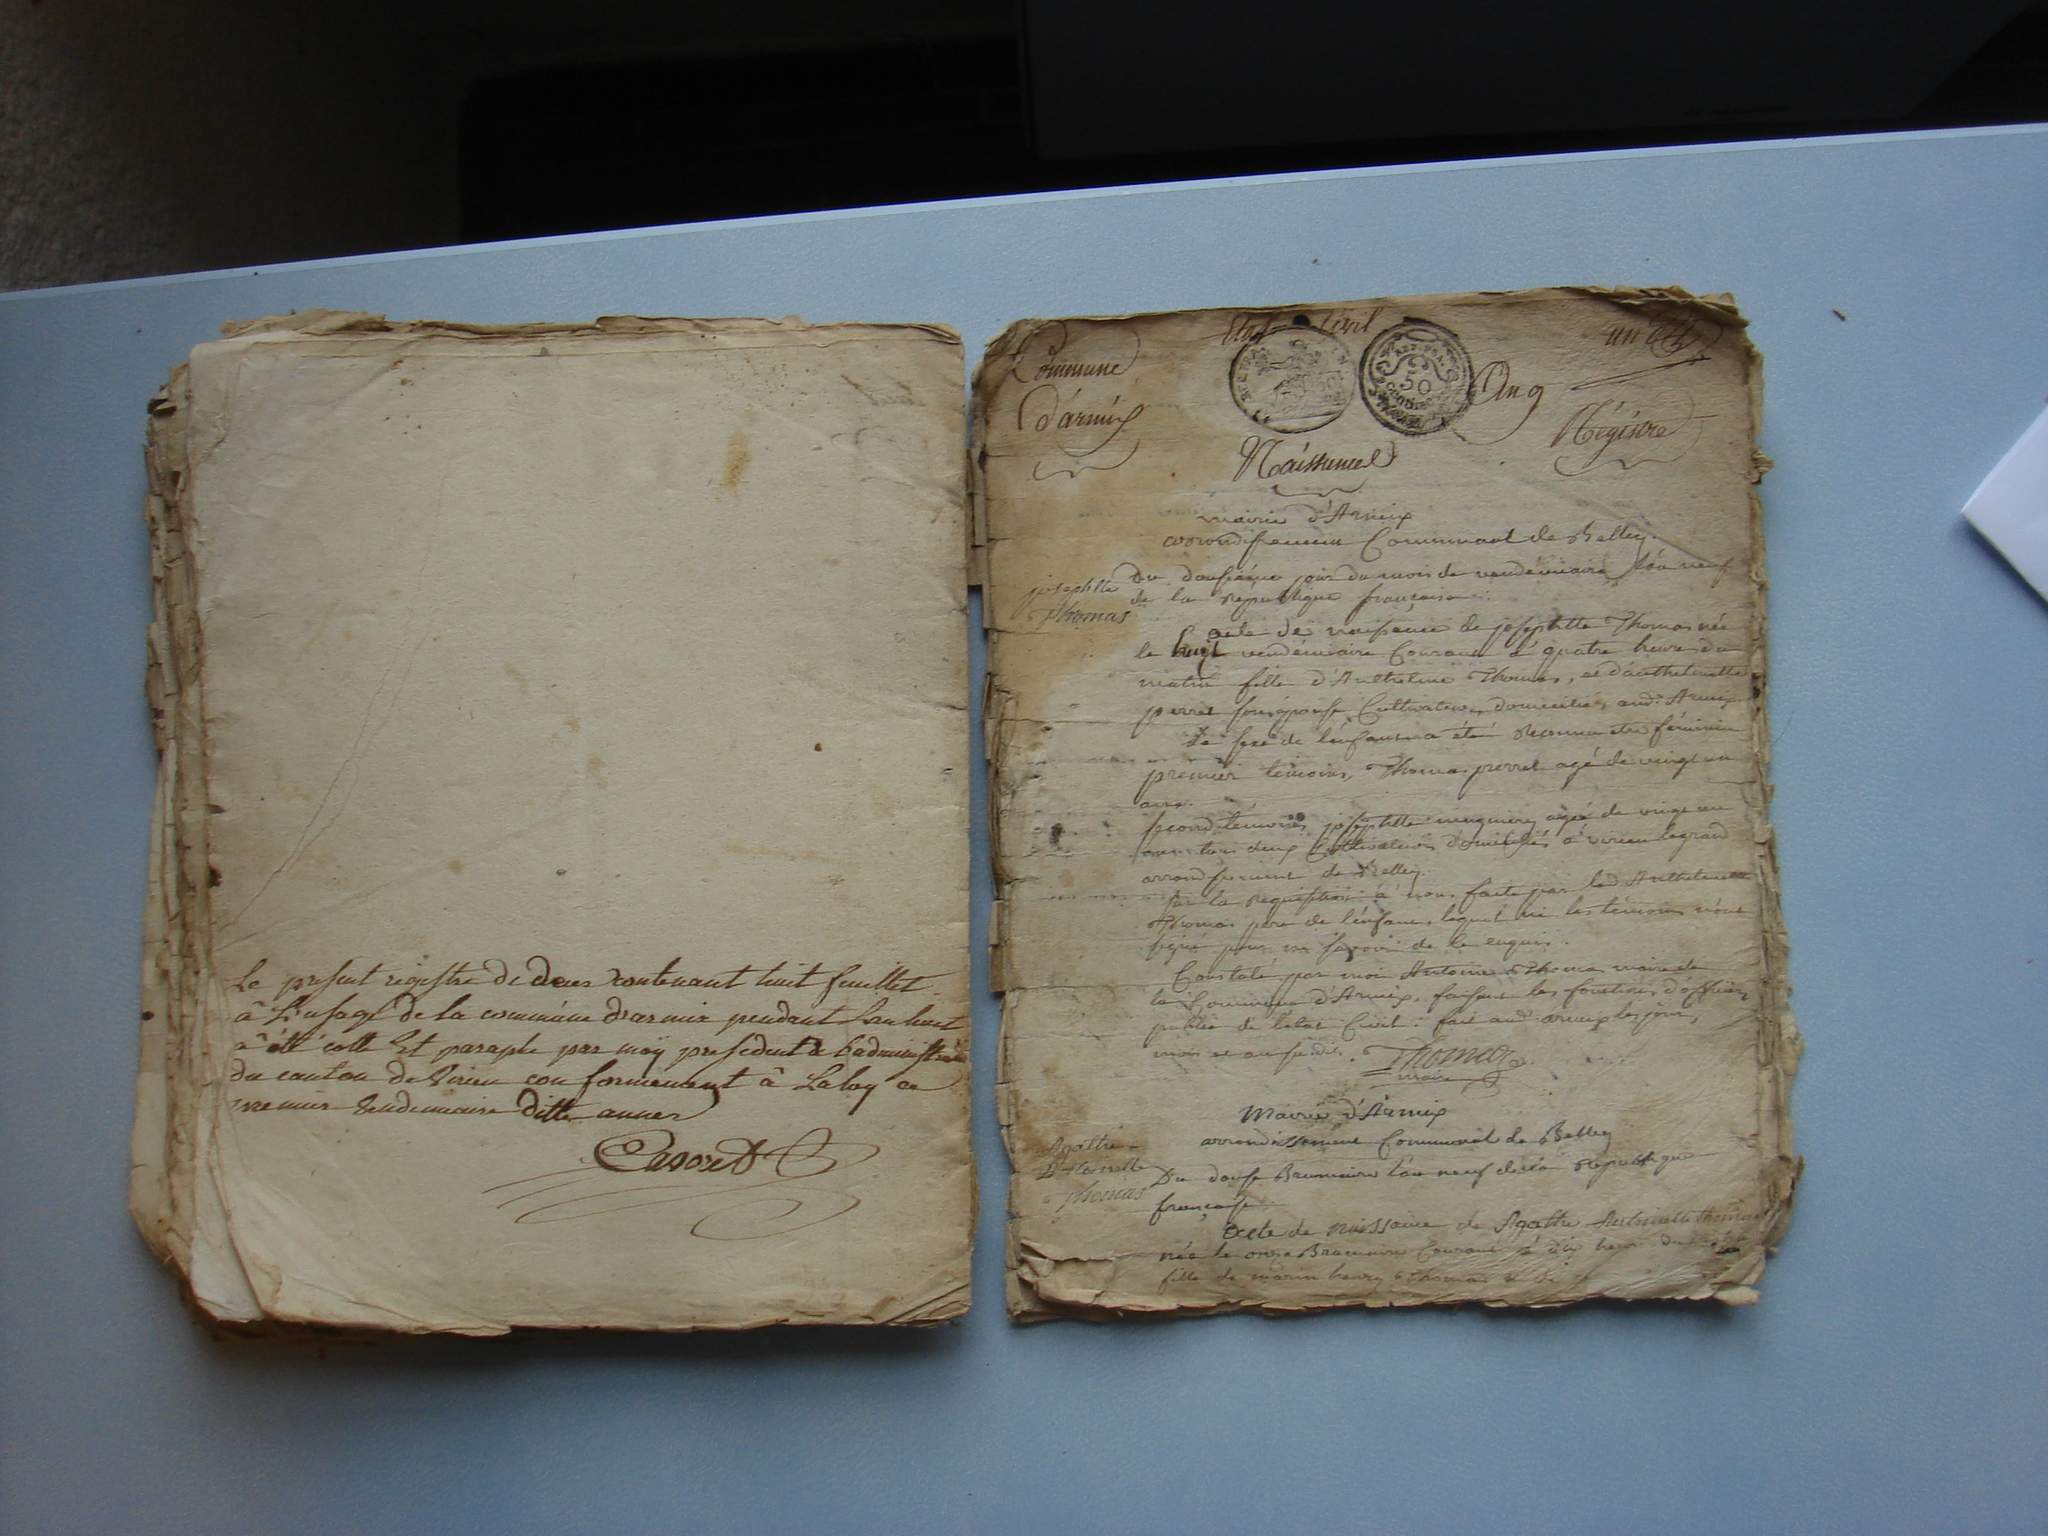 Le present registre de deux contenant huit feuillet
à L'usage de la commune d'armix pendant Lan huit
a été cotté Et paraphé par moy president de L'administration
du canton de Virieu conformement à La loy ce
premier Vendemiaire ditte année
Etat Civil
Commune
d'armix
REP. FRA.
50
An 9
Régistre
Naissances
mairie d'Armix
arrondissement Communal de Belley.
josephtte
Thomas
Du douzième jour du mois de vendémiaire l'an neuf
de la République française.
acte de naissance de josephtte Thomas née
le huit vendémiaire Courant à quatre heures du
matin fille d'Anthelme Thomas, et d'anthelmette
perret son épouse Cultivateurs domiciliés aud. Armix
Le sexe de l'enfant a été Reconnu être féminin
premier témoin, Thomas perret agé de vingt un
ans.
second témoin, josephtte agée de vingt un
ans tous deux Cultivateurs domiciliés à virieu legrand
arrondissement de Belley.
sur la requisition à nous faite par led Anthelme
Thomas père de l'enfant, lequel ni les témoins n'ont
signé pour ne savoir de ce enquis.
Constaté par moi Antoine Thomas maire de
la Commune d'Armix, faisant les fonctions d'officier
public de l'état Civil: fait aud armix les jour,
mois et an susdits. Thomas
maire
Mairie d'Armix
arrondissement Communal de Belley
Agathe
Antoinette
Thomas
Du douze Brumaire l'an neuf de la Republique
française
Acte de naissance de Agathe Antoinette thomas
née le onze Brumaire Courant à dix heures du
fille de marin henry thomas